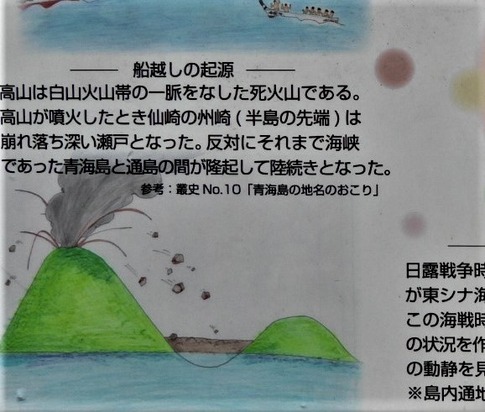 船越しの起源
高山は白山火山帯の一脈をなした死火山である。
高山が噴火したとき仙崎の州崎(半島の先端)は
崩れ落ち深い瀬戸となった。反対にそれまで海峡
であった青海島と通島の間が隆起して陸続きとなった。
参考：叢史No.10「青海島の地名のおこり」
日露戦争時
が東シナ海
この海戦時
の状況を作
の動静を見
※島内通地